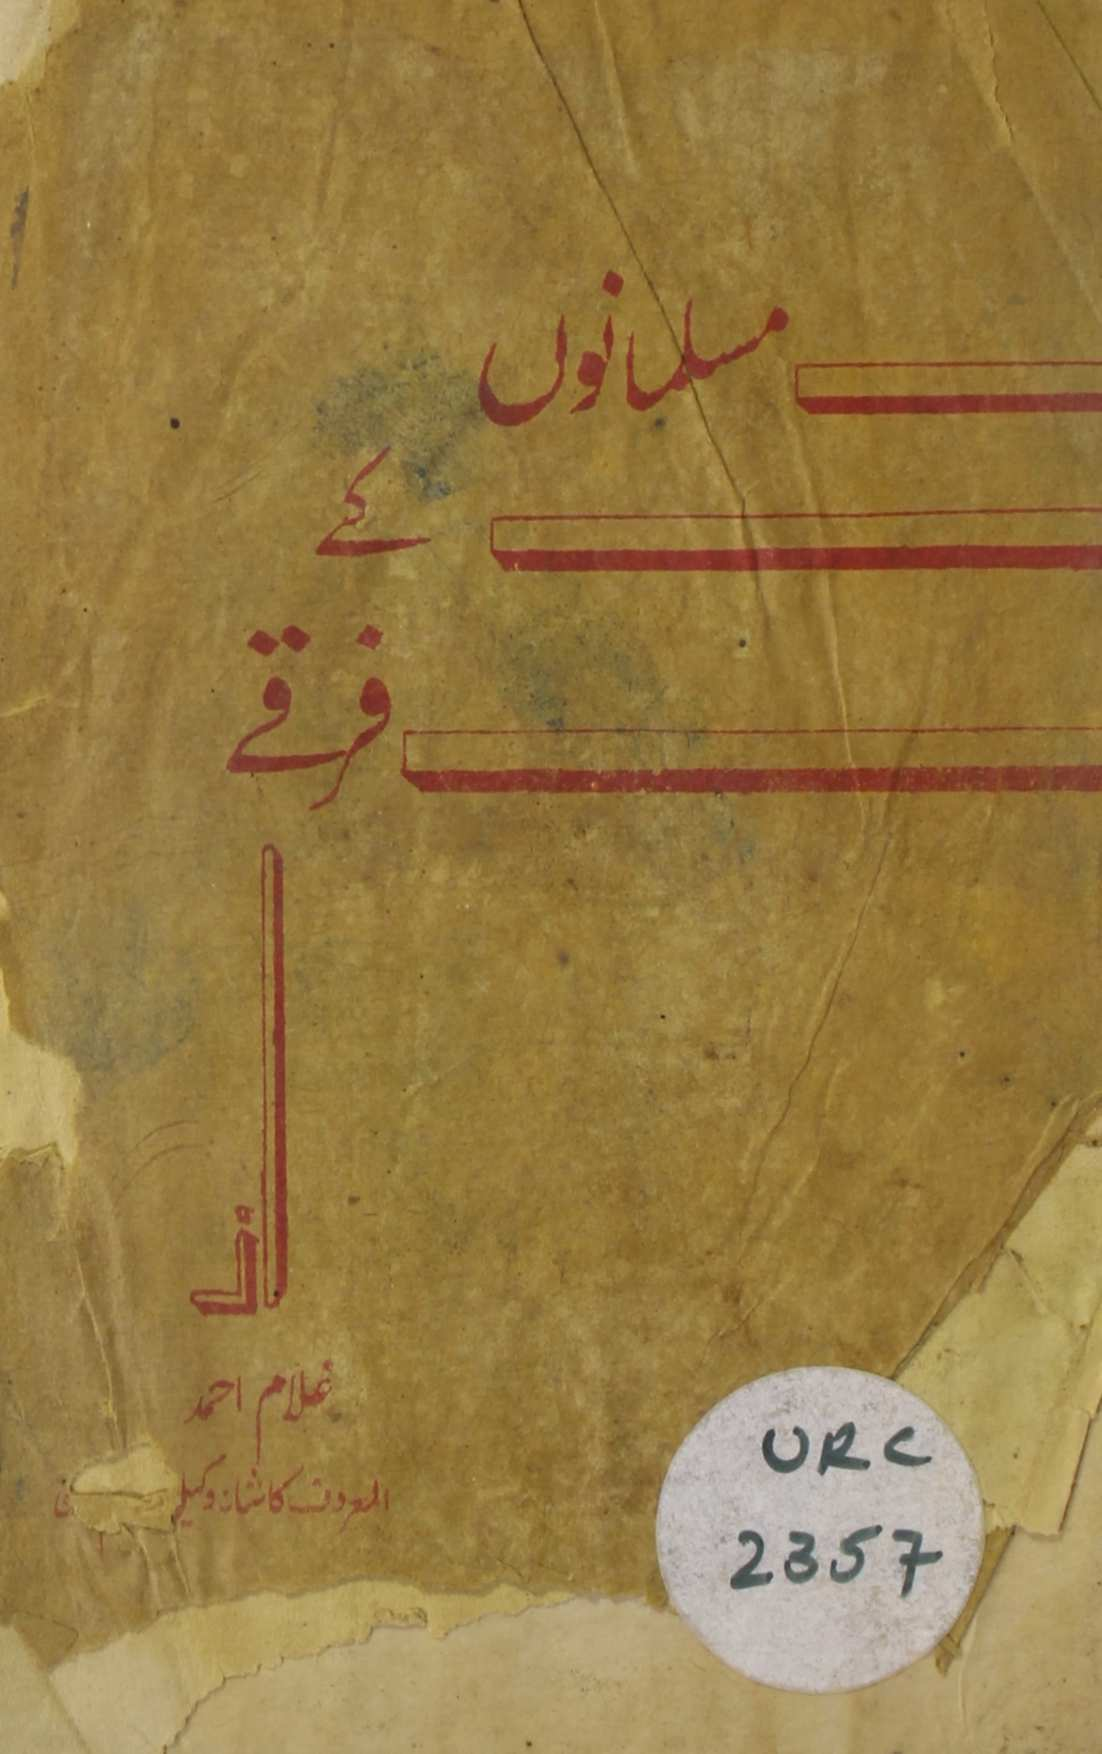 مسلمانوں
کے
فرقے
از
غلام احمد
المعروف کاشانہ وکیل
URC
2357